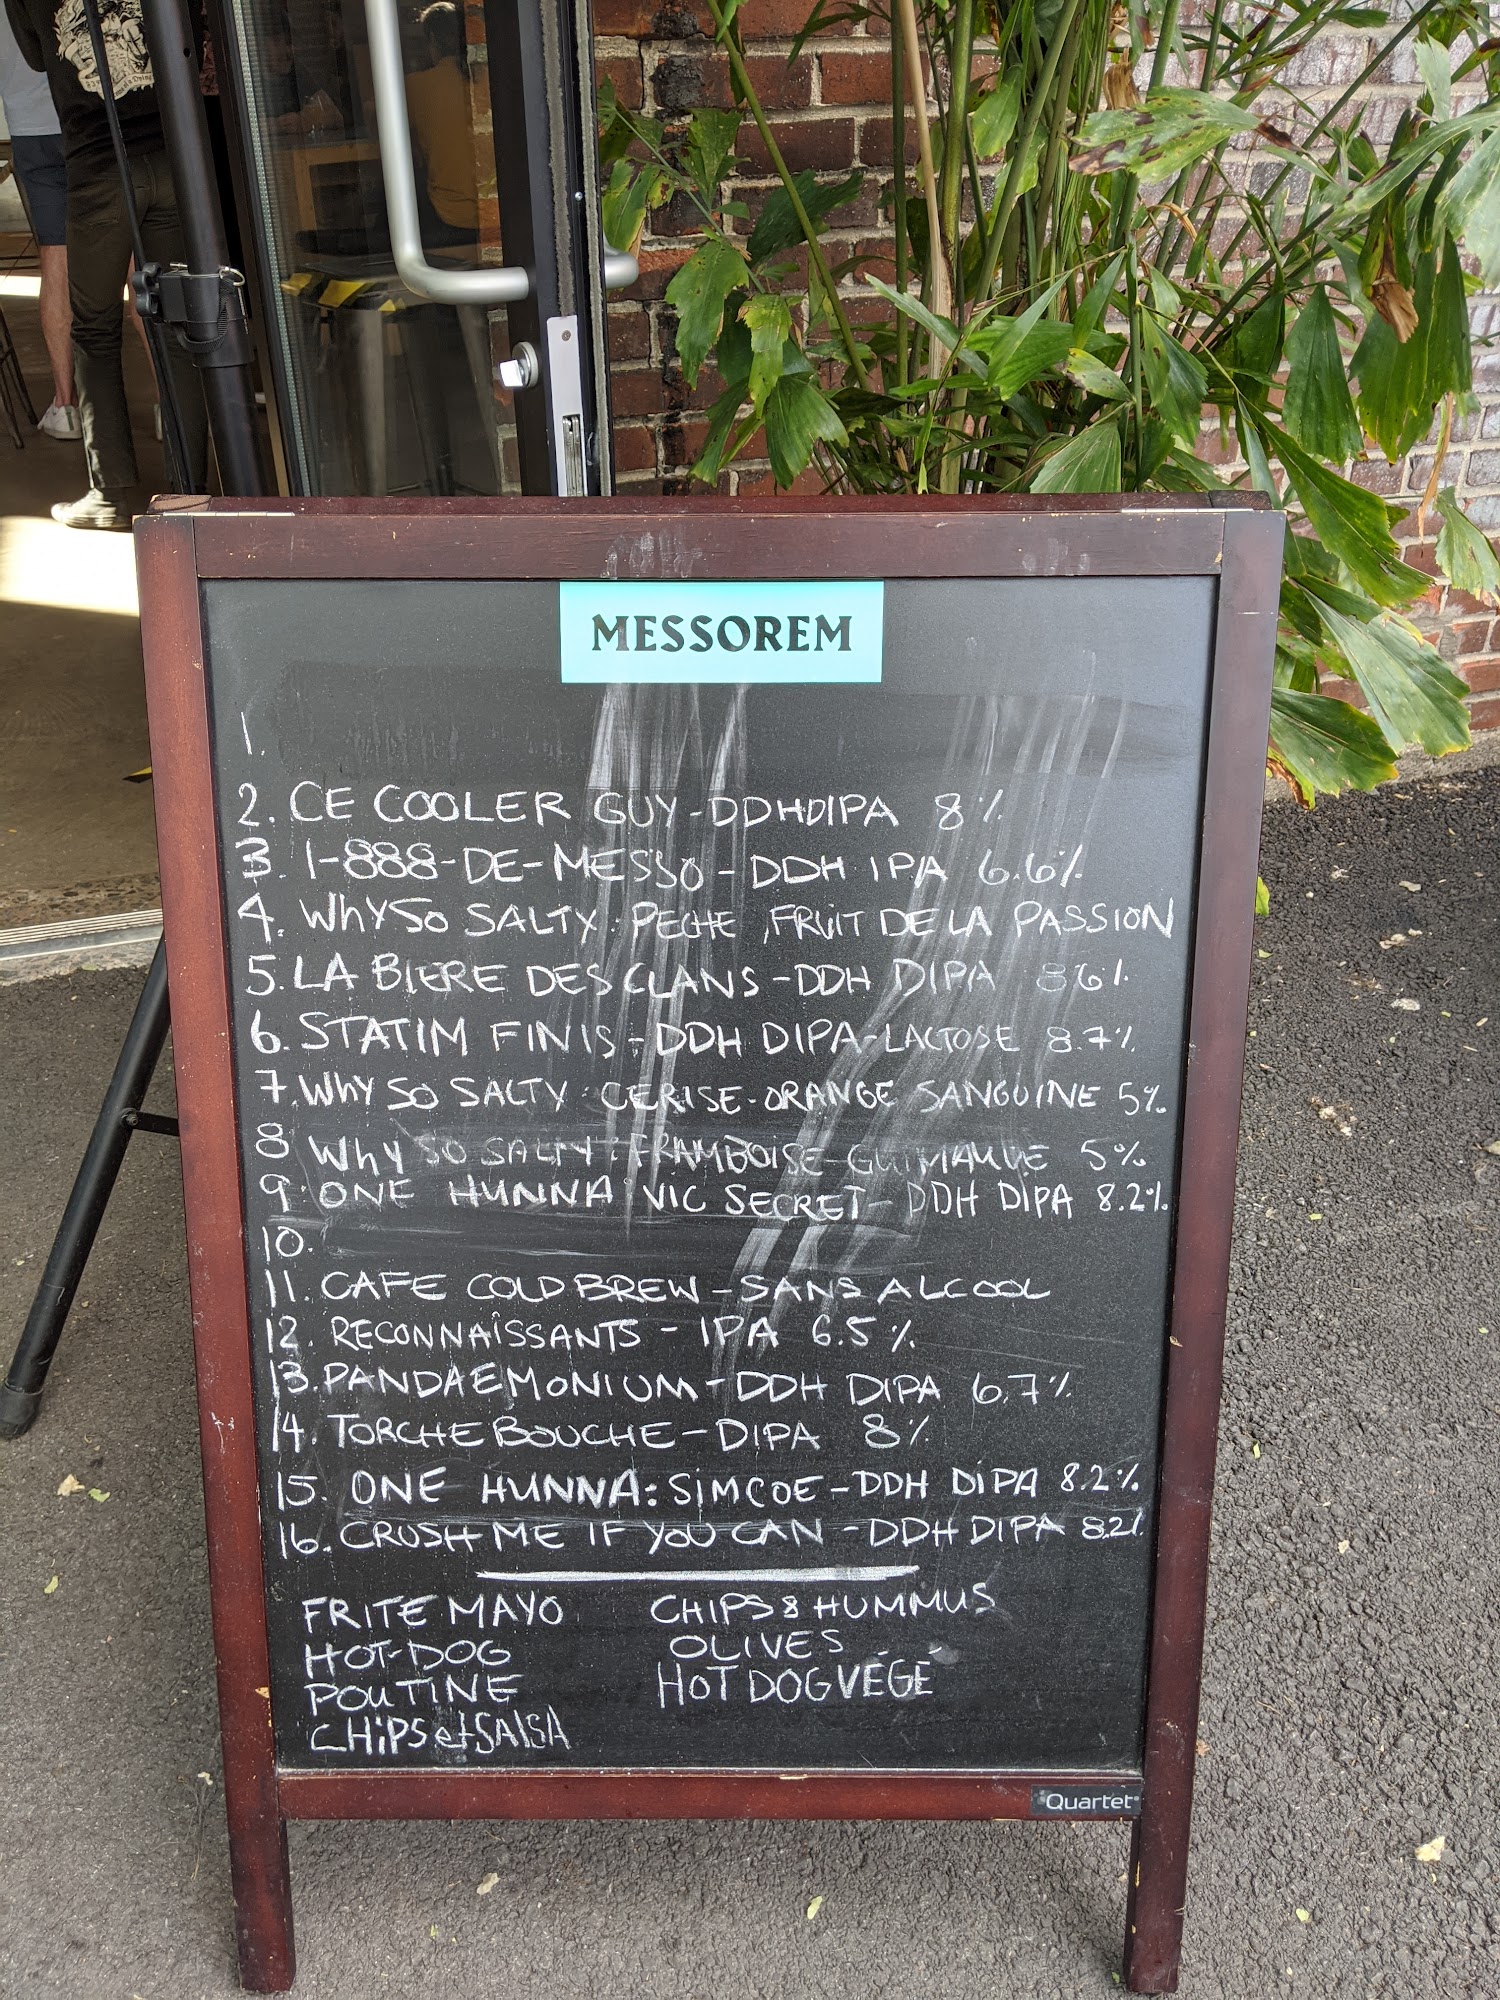 MESSOREM
1.
2. CE COOLER GUY-DDHDIPA 8%
3. 1-888-DE-MESSO-DDH IPA 6.6%
4. WHY SO SALTY: PECHE, FRUIT DE LA PASSION
5. LA BIERE DES CLANS-DDH DIPA 8.6%
6. STATIM FINIS-DDH DIPA-LACTOSE 8.7%
7. WHY SO SALTY: CERISE-ORANGE SANGUINE 5%
8 WHY SO SALTY: FRAMBOISE-GUIMAUVE 5%
9. ONE HUNNA: VIC SECRET-DDH DIPA 8.2%
10.
11. CAFE COLD BREW-SANS ALCOOL
12. RECONNAÎSSANTS-IPA 6.5%
13. PANDAEMONIUM-DDH DIPA 6.7%
14. TORCHE BOUCHE-DIPA 8%
15. ONE HUNNA: SIMCOE-DDH DIPA 8.2%
16. CRUSH ME IF YOU CAN-DDH DIPA 8.2%
FRITE MAYO
HOT-DOG
POUTINE
CHIPS et SALSA
CHIPS & HUMMUS
OLIVES
HOT DOG VÉGÉ
Quartet